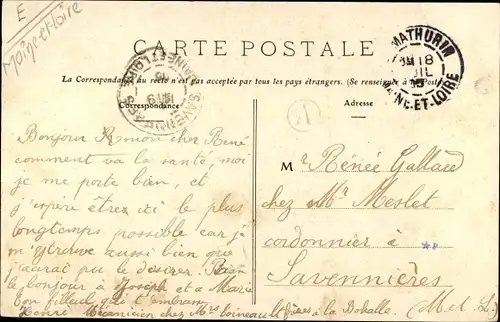 E
Maine-et-Loire
CARTE POSTALE
La Correspondance au recto n'est pas acceptée par tous les pays étrangers. (Se renseigner à la Poste)
Correspondance
Adresse
MATHURIN
18
JUIL
MAINE-ET-LOIRE
SAVENNIÈRES
Bonjour mon cher René
comment va la santé, moi
je me porte bien, et
j'espère êtres ici le plus
longtemps possible car je
m'y trouve aussi bien que
j'aurai pu le désirer. Bien
le bonjour à Joseph et a Marie
bon filleul qui t'embrasse
Henri Mécanicien chez Mrs Loineau et frères à la Bohalle. M et L
Mr Rénée Galland
chez Mr Meslet
cordonnier à
Savennières